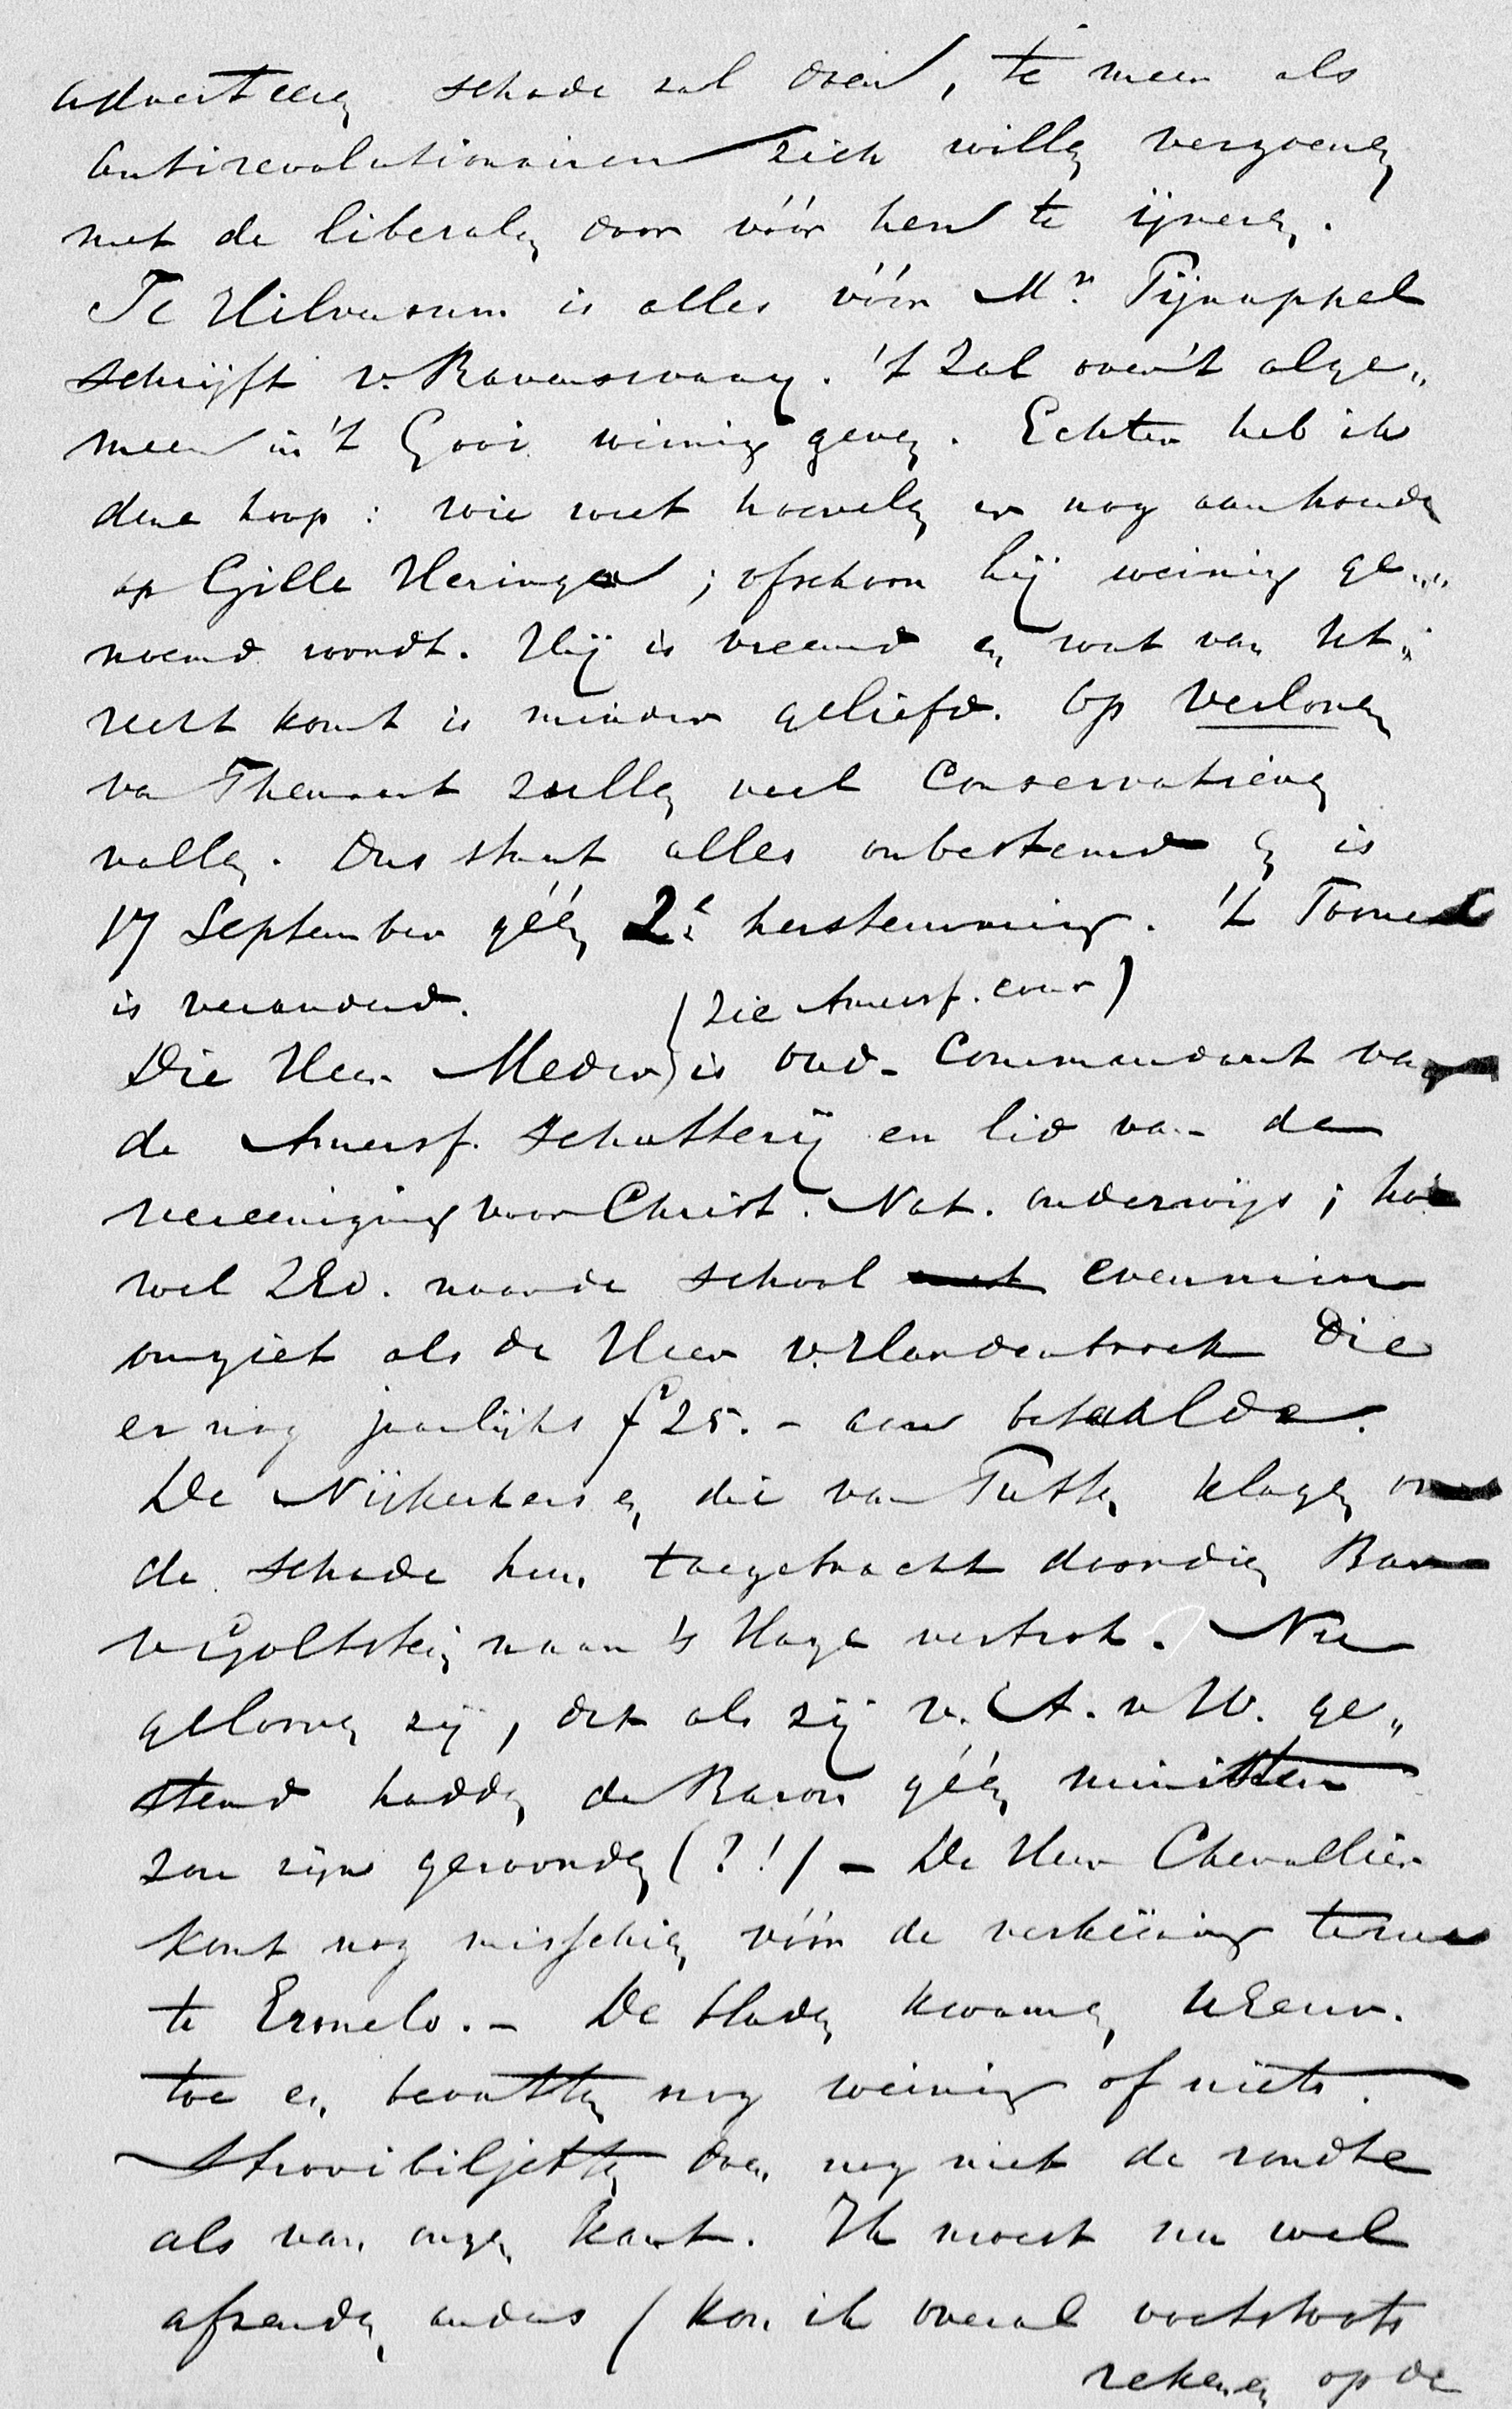 adverteeren schade zal doen, te meer als
antirevolutionairen zich willen verzoenen
met de liberalen door vóór hen te ijveren.
Te Hilversum is alles vóór Mr. Pijnappel
schrijft v. Ravenswaay. 't Zal over 't alge„
meen in 't Gooi weinig geven. Echter heb ik
deze hoop: wie weet hoevelen er nog aanhouden
op Gille Heringa; ofschoon hij weinig ge„
noemd wordt. Hij is vreemd en wat van Ut„
recht komt is minder geliefd. Op Verloren
van Theunert zullen veel Conservatieven
vallen. Dus staat alles onbestemd en is
17 September géén 2e herstemming. 't Toneel
is veranderd.
(zie Amersf. cour)
Die Heer Meder is oud-Commandant van
de Amersf. Schutterij en lid van de
vereeniging voor Christ. Nat. onderwijs; hoe
wel ZEd. naar de school evenmin
omziet als de Heer v. Hardenbroek die
er nog jaarlijks f 25.- aan betaalde.
De Nijkerkers en die van Putten klagen over
de schade hun toegebracht doordien Baron
v Goltstein naar 's Hage vertrok. Nu
gelooven zij, dat als zij v. A. v W. ge„
stemd hadden de Baron géén minister
zou zijn geworden (?!) - De Heer Chevallier
komt nog misschien vóór de verkiezing terug
te Ermelo. - De bladen kwamen UEerw.
toe en bevatten nog weinig of niets.
Strooibiljetten doen nog niet de rondte
als van onzen kant. Ik moest nu wel
afzenden anders (kon ik overal voetstoots
rekenen op de